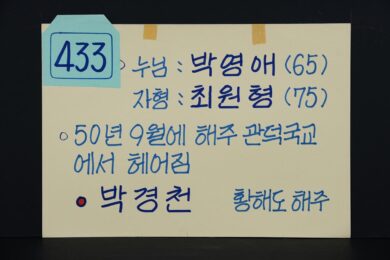 433
○ 누님 : 박영애 (65)
자형 : 최원형 (75)
○ 50년 9월에 해주 관덕국교
에서 헤어짐
● 박경천 황해도 해주